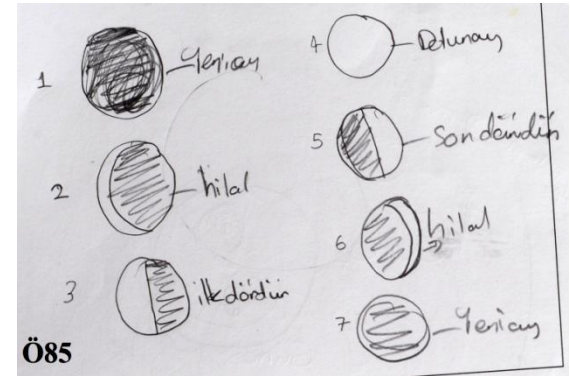 1 Yeniay
2 hilal
3 ilkdördün
4 Dolunay
5 Son dördün
6 hilal
7 Yeniay
Ö85